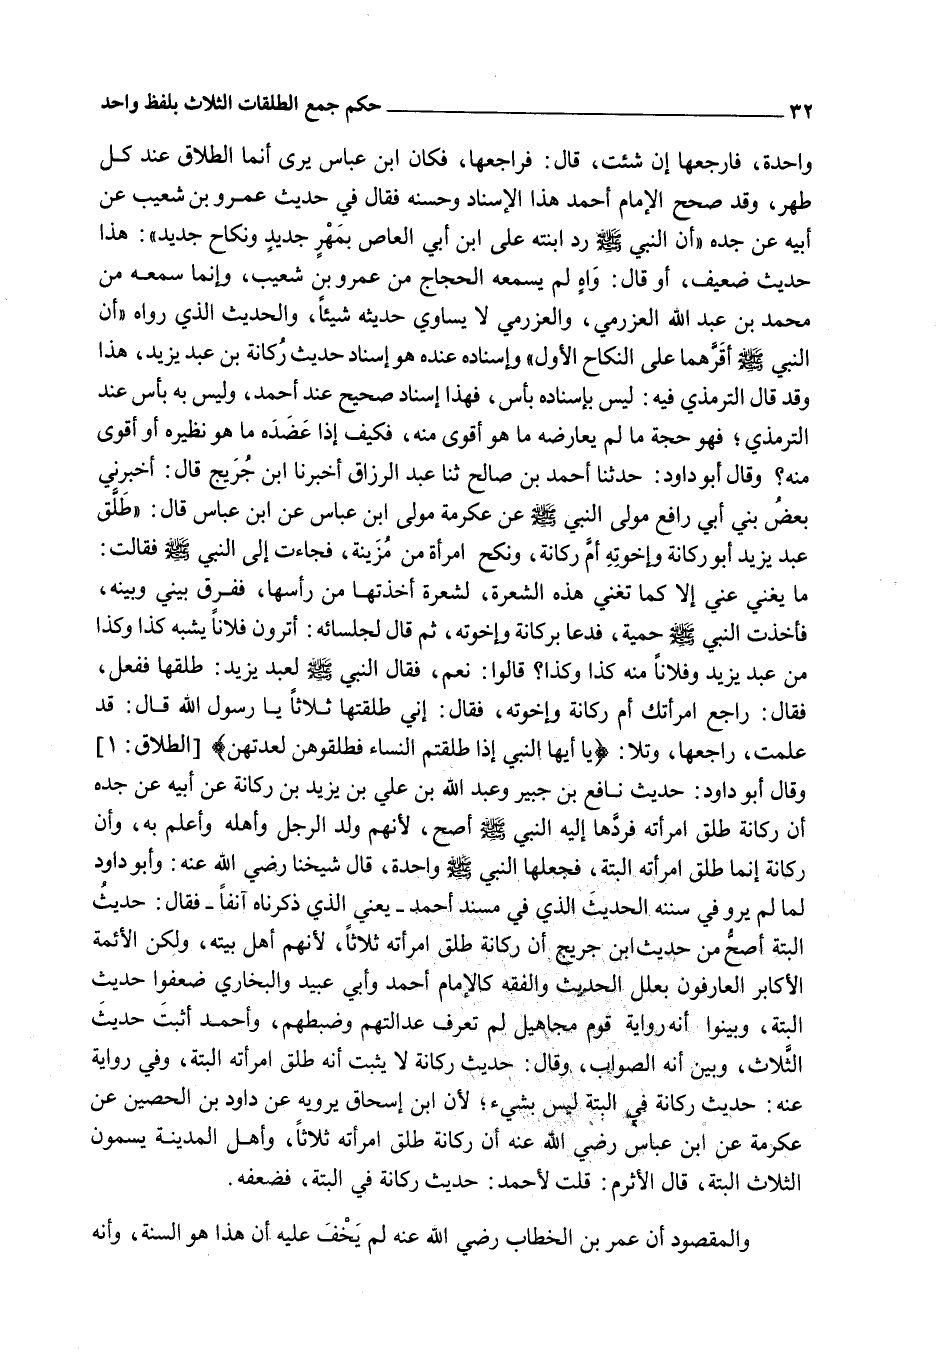 ٣٢ حكم جمع الطلقات الثلاث بلفظ واحد
واحدة، فارجعها إن شئت، قال: فراجعها، فكان ابن عباس يرى أنما الطلاق عند كل
طهر، وقد صحح الإمام أحمد هذا الإسناد وحسنه فقال في حديث عمرو بن شعيب عن
أبيه عن جده «أن النبي ﷺ رد ابنته على ابن أبي العاص بمَهْرٍ جديدٍ ونكاح جديد»: هذا
حديث ضعيف، أو قال: وَاهٍ لم يسمعه الحجاج من عمرو بن شعيب، وإنما سمعه من
محمد بن عبد الله العزرمي، والعزرمي لا يساوي حديثه شيئاً، والحديث الذي رواه «أن
النبي ﷺ أقَرَّهما على النكاح الأول» وإسناده عنده هو إسناد حديث رُكانة بن عبد يزيد، هذا
وقد قال الترمذي فيه: ليس بإسناده بأس، فهذا إسناد صحيح عند أحمد، وليس به بأس عند
الترمذي؛ فهو حجة ما لم يعارضه ما هو أقوى منه، فكيف إذا عَضَدَه ما هو نظيره أو أقوى
منه؟ وقال أبو داود: حدثنا أحمد بن صالح ثنا عبد الرزاق أخبرنا ابن جُرَيج قال: أخبرني
بعضُ بني أبي رافع مولى النبي ﷺ عن عكرمة مولى ابن عباس عن ابن عباس قال: «طَلَّق
عبد يزيد أبو ركانة وإخوتِهِ أمَّ ركانة، ونكح امرأة من مُزَينة، فجاءت إلى النبي ﷺ فقالت:
ما يغني عني إلا كما تغني هذه الشعرة، لشعرة أخذتها من رأسها، ففرق بيني وبينه،
فأخذت النبي ﷺ حمية، فدعا بركانة وإخوته، ثم قال لجلسائه: أترون فلاناً يشبه كذا وكذا
من عبد يزيد وفلاناً منه كذا وكذا؟ قالوا: نعم، فقال النبي ﷺ لعبد يزيد: طلقها ففعل،
فقال: راجع امرأتك أم ركانة وإخوته، فقال: إني طلقتها ثلاثاً يا رسول الله قال: قد
علمت، راجعها، وتلا: ﴿يا أيها النبي إذا طلقتم النساء فطلقوهن لعدتهن﴾ [الطلاق: ١]
وقال أبو داود: حديث نافع بن جبير وعبد الله بن علي بن يزيد بن ركانة عن أبيه عن جده
أن ركانة طلق امرأته فردَّها إليه النبي ﷺ أصح، لأنهم ولد الرجل وأهله وأعلم به، وأن
ركانة إنما طلق امرأته البتة، فجعلها النبي ﷺ واحدة، قال شيخنا رضي الله عنه: وأبو داود
لما لم يرو في سننه الحديثَ الذي في مسند أحمد ـ يعني الذي ذكرناه آنفاً ـ فقال: حديثُ
البتة أصحُّ من حديث ابن جريج أن ركانة طلق امرأته ثلاثاً، لأنهم أهل بيته، ولكن الأئمة
الأكابر العارفون بعلل الحديث والفقه كالإمام أحمد وأبي عبيد والبخاري ضعفوا حديث
البتة، وبينوا أنه رواية قوم مجاهيل لم تعرف عدالتهم وضبطهم، وأحمد أثبتَ حديثَ
الثَّلاث، وبين أنه الصواب، وقال: حديث ركانة لا يثبت أنه طلق امرأته البتة، وفي رواية
عنه: حديث ركانة في البتة ليس بشيء؛ لأن ابن إسحاق يرويه عن داود بن الحصين عن
عكرمة عن ابن عباس رضي الله عنه أن ركانة طلق امرأته ثلاثاً، وأهل المدينة يسمون
الثلاث البتة، قال الأثرم: قلت لأحمد: حديث ركانة في البتة، فضعفه.
والمقصود أن عمر بن الخطاب رضي الله عنه لم يَخْفَ عليه أن هذا هو السنة، وأنه